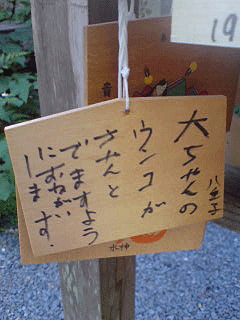 19
貴
八王子
大ちゃんの
ウンコが
きちんと
でますよう
におねがい
します。
水神